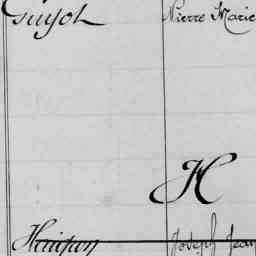 Guyot Pierre Marie
H
Joseph Jean